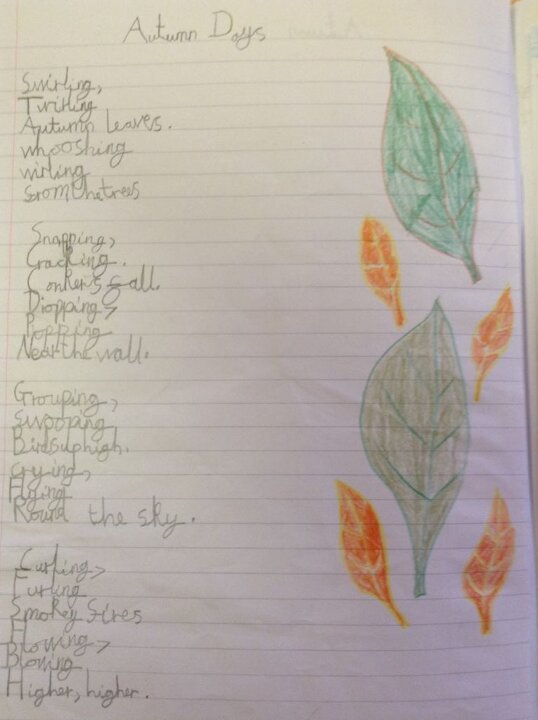 Autumn Days
Swirling,
Twirling
Autumn Leaves.
whooshing
wirling
srom the trees
Snapping,
Cracking.
Conkers fall.
Dropping,
Popping
Near the wall.
Grouping,
swooping
Birds up high.
crying,
Flying
Round the sky.
Curling,
Furling
Smokey fires
H
Blowing,
Blowing
Higher, higher.